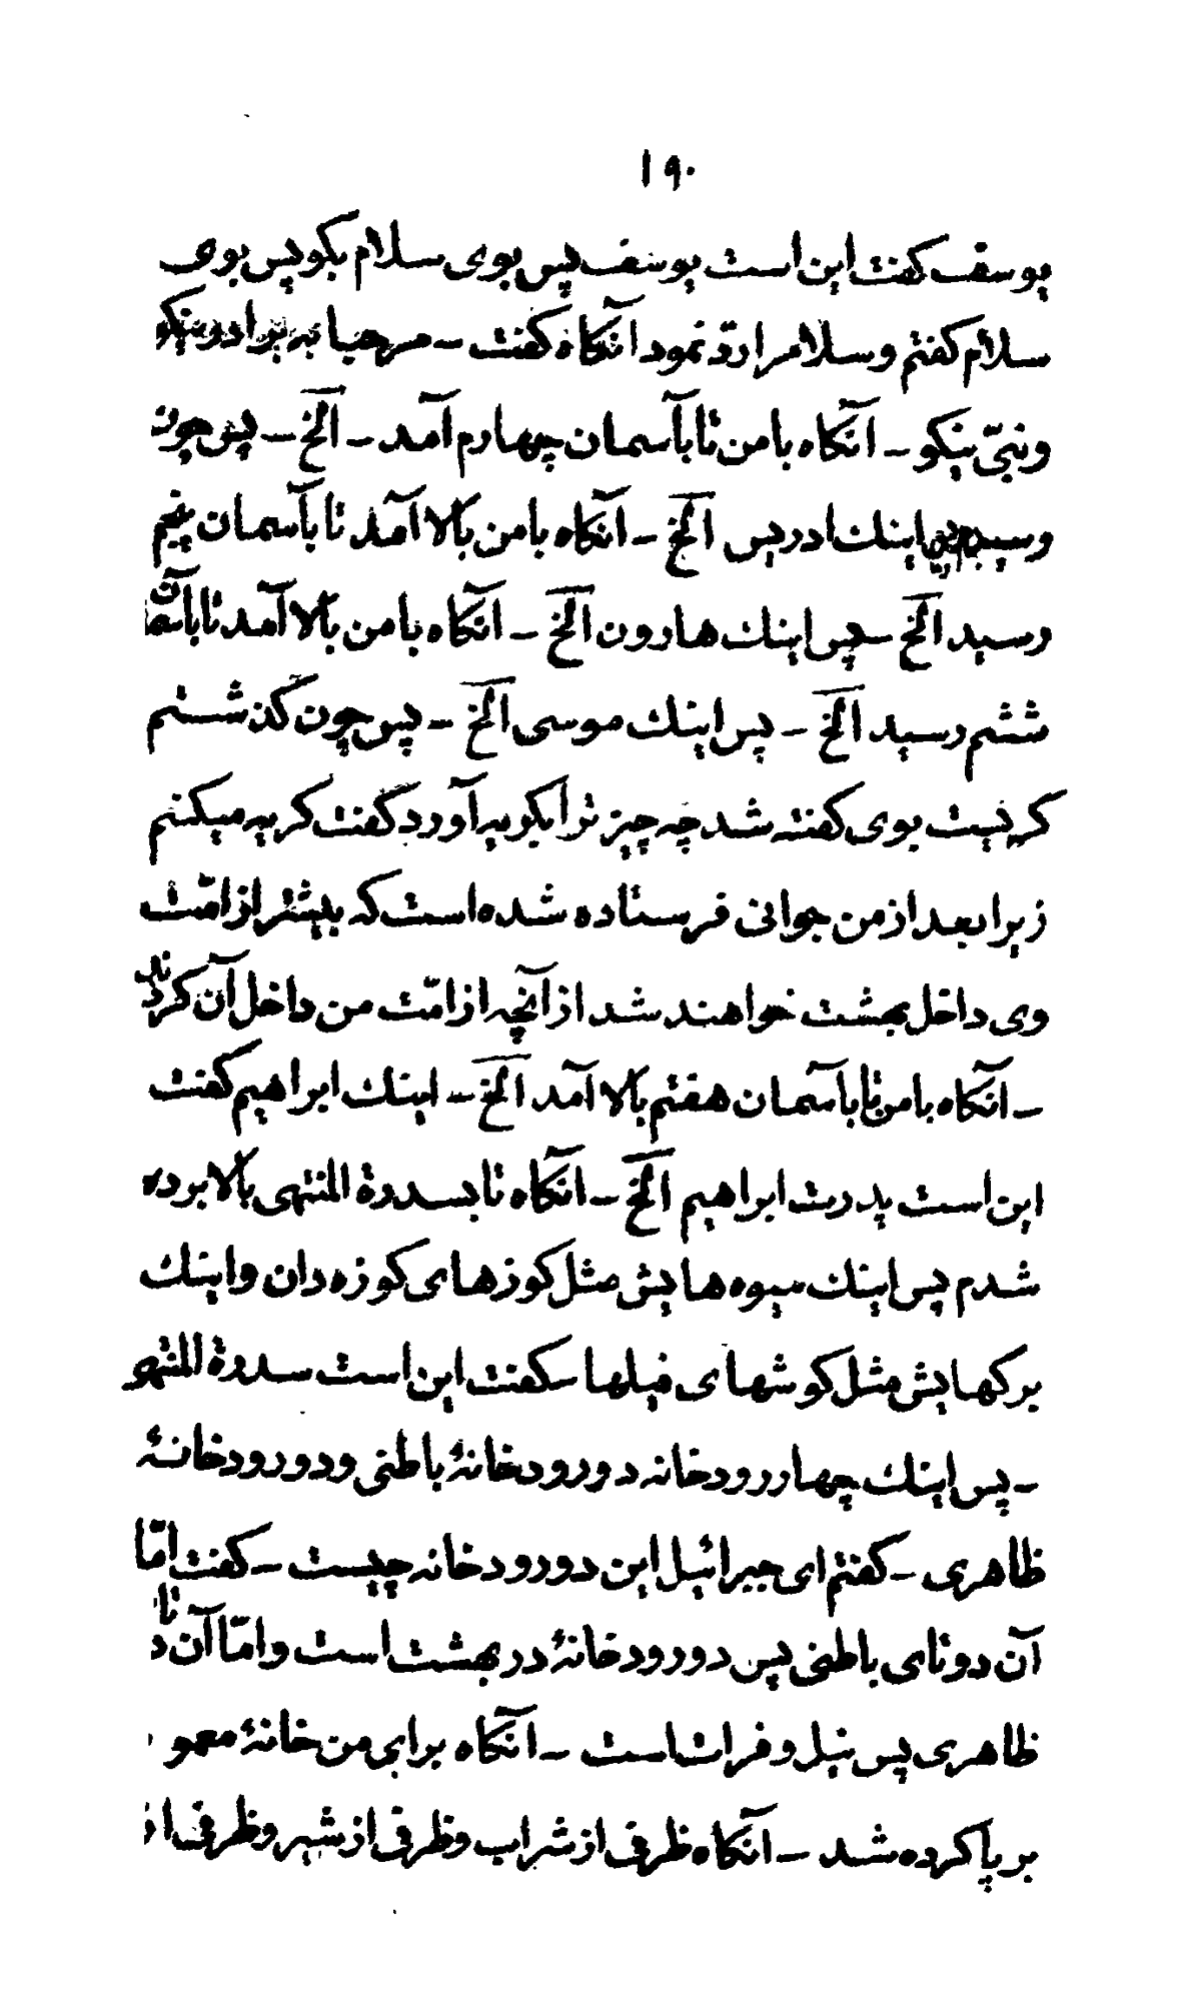 ۱۹۰
یوسف کفت این است یوسف پس بوی سلام بکو پس بوی
سلام کفتم و سلام مرا ردّ نمود انکاه کفت – مرحبا به برادر نیکو
ونبیّ نیکو – انکاه با من تا بآسمان چهارم آمد – الخ – پس چون
رسیدم اینك ادریس الخ – انکاه با من بالا آمد تا بآسمان پنجم
رسید الخ – پس اینك هارون الخ – انکاه با من بالا آمد تا بآسمان
ششم رسید الخ – پس اینك موسی الخ – پس چون کذشتم
کریست بوی کفته شد چه چیز ترا بکریه آورد کفت کریه میکنم
زیرا بعد از من جوانی فرستاده شده است که بیشتر از امّت
وی داخل بهشت خواهند شد از آنچه از امّت من داخل آن کردند
– انکاه با من تا بآسمان هفتم بالا آمد الخ – اینك ابراهیم کفت
این است پدرت ابراهیم الخ – انکاه تا بسدرة المنتهی بالا برده
شدم پس اینك میوه هایش مثل کوزهای کوزه دان و اینك
برکهایش مثل کوشهای فیلها – کفت این است سدرة المنتهی
– پس اینك چهار رودخانه دو رودخانهٔ باطنی و دو رودخانهٔ
ظاهری – کفتم ای جبرائیل این دو رودخانه چیست – کفت امّا
آن دو تای باطنی پس دو رودخانهٔ در بهشت است و امّا آن دو تای
ظاهری پس نیل و فرات است – انکاه برای من خانهٔ معمو
بر پا کرده شد – انکاه ظرفی از شراب و ظرفی از شیر و ظرفی از